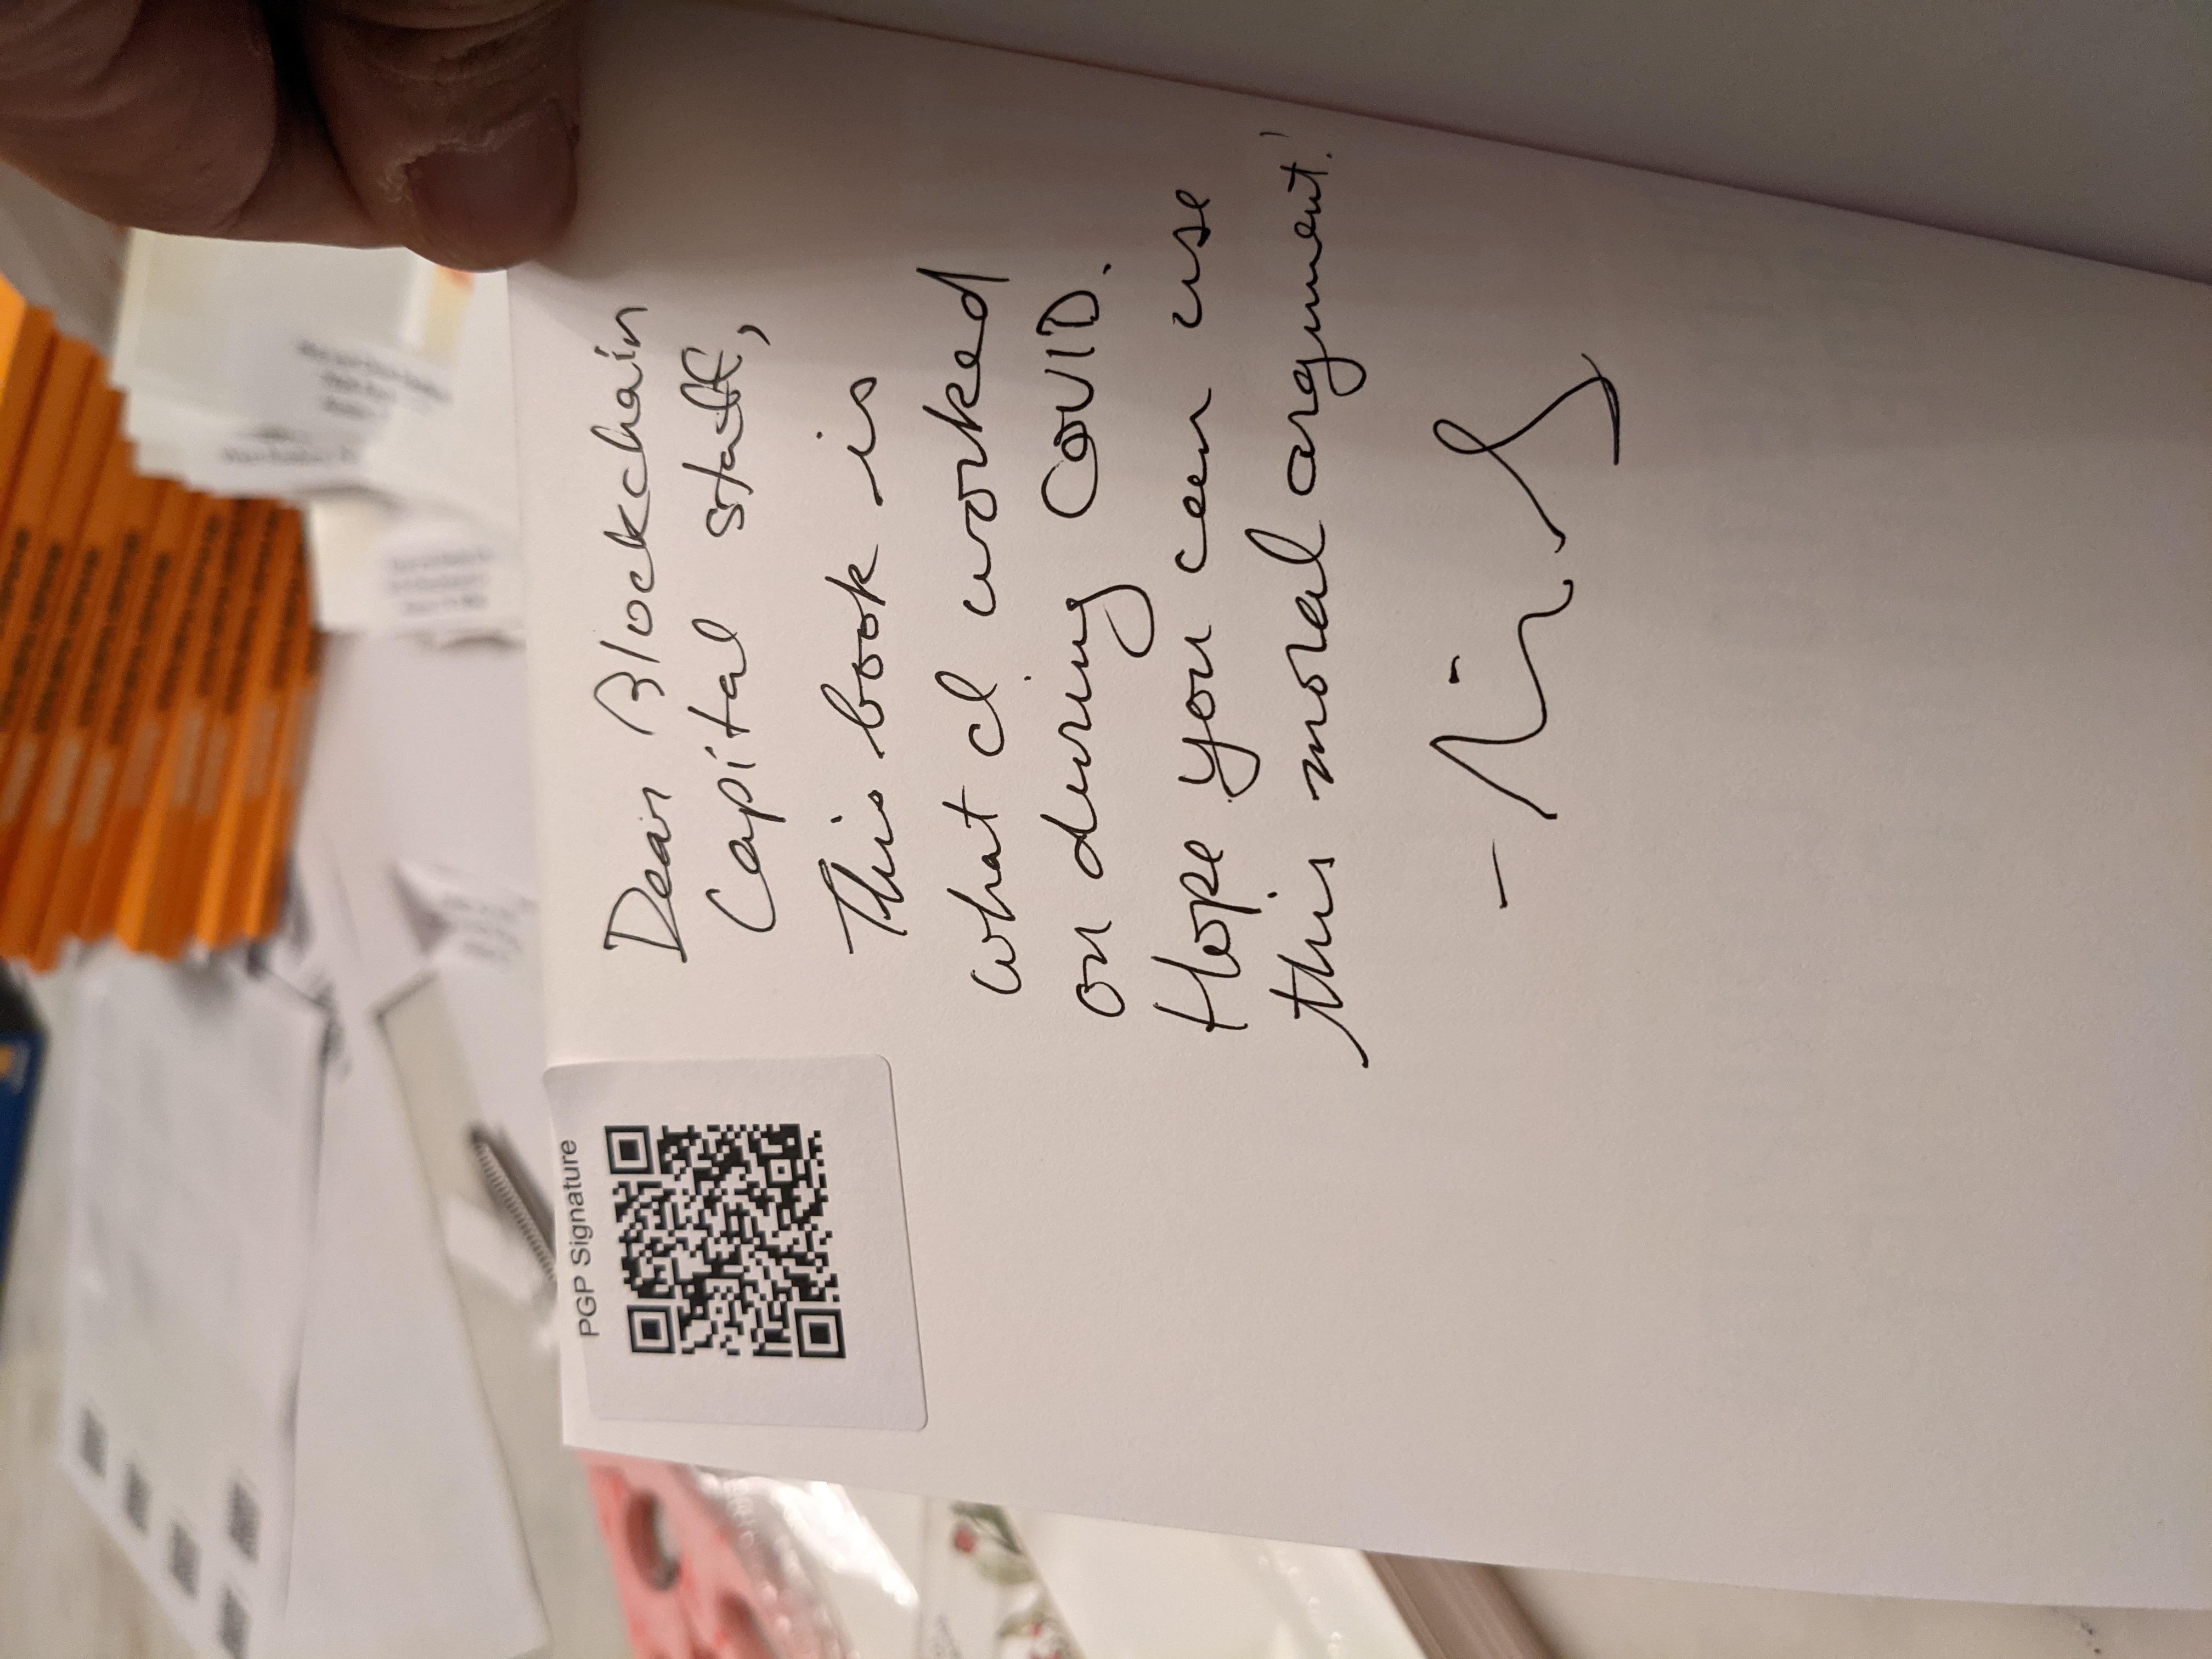 PGP Signature
Dear Blockchain
Capital staff,
This book is
what I worked
on during COVID.
Hope you can use
this moral argument!